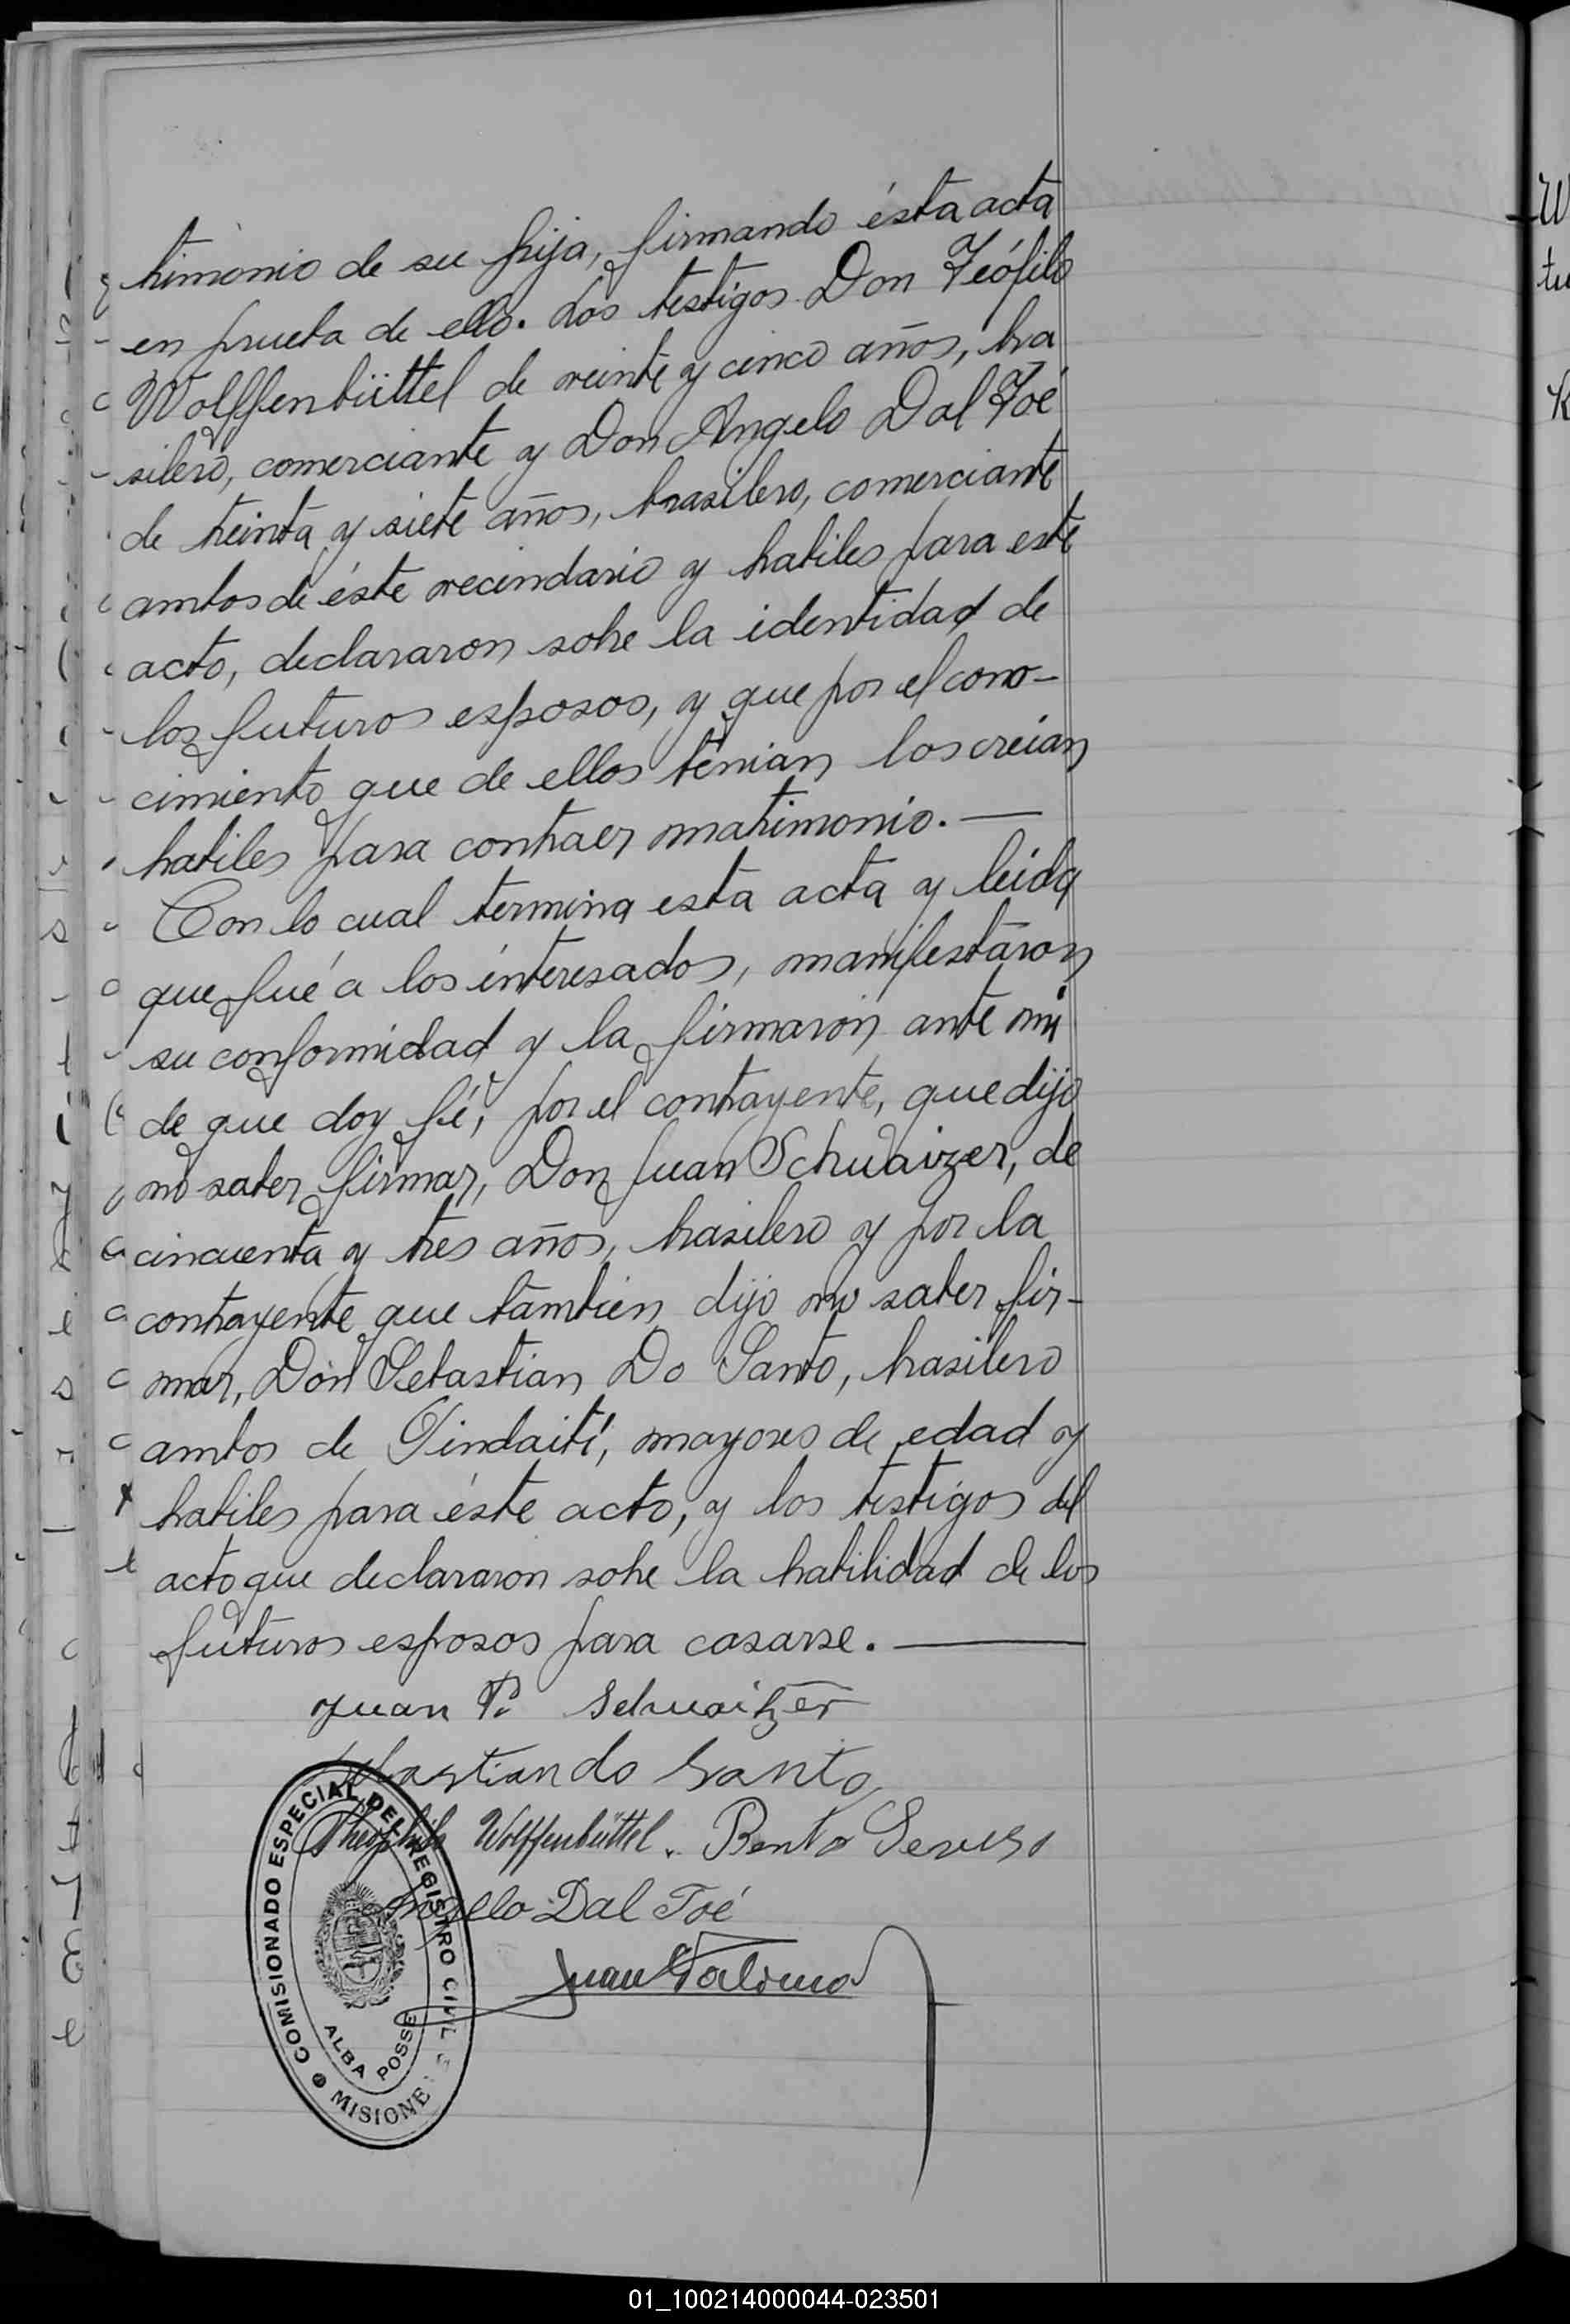 trimonio de su hija, firmando ésta acta
en prueba de ello. Los testigos Don Teófilo
Wolffenbüttel de veinte y cinco años, bra
silero, comerciante y Don Angelo Dal Toé
de treinta y siete años, brasilero, comerciante
ambos de éste vecindario y habiles para este
acto, declararon sobre la identidad de
los futuros esposos, y que por el cono-
cimiento que de ellos tenian los creian
habiles para contraer matrimonio.—
Con lo cual termina esta acta y leida
que fué a los interesados, manifestaron
su conformidad y la firmaron ante mi
de que doy fé, por el contrayente, que dijo
no saber firmar, Don Juan Schwaizer, de
cincuenta y tres años, brasilero y por la
contrayente que tambien dijo no saber fir-
mar, Don Sebastian Do Santo, brasilero
ambos de Pindaití, mayores de edad y
habiles para éste acto, y los testigos del
acto que declararon sobre la habilidad de los
futuros esposos para casarse.—
Juan P. Schwaitzer
Sebastian do Santo
Theophilo Wolffenbüttel. Bento
Angello Dal Toé
Juan
COMISIONADO ESPECIAL DEL REGISTRO CIVIL
ALBA POSSE
MISIONE
01_100214000044-023501